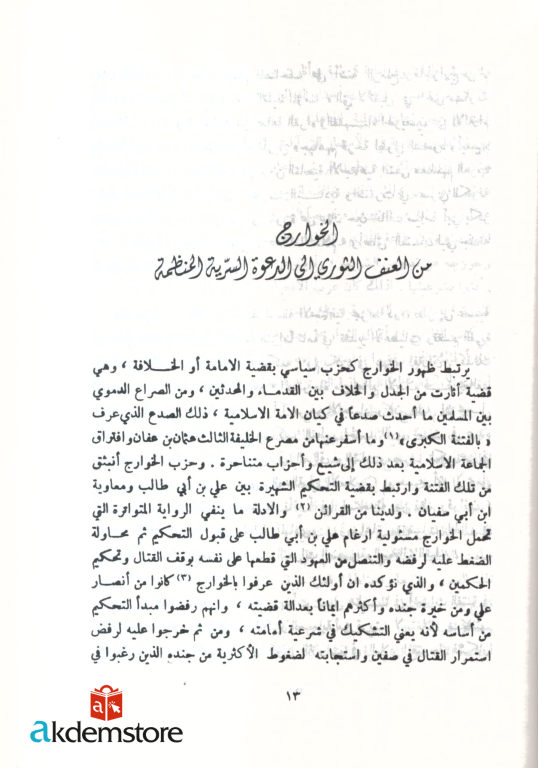 الخوارج
من العنف الثوري الى الدعوة السرية المنظمة
يرتبط ظهور الخوارج كحزب سياسي بقضية الامامة أو الخـلافة ، وهي
قضية أثارت من الجدل والخلاف بين القدماء والمحدثين ، ومن الصراع الدموي
بين المسلمين ما أحدث صدعاً في كيان الامة الاسلامية ، ذلك الصدع الذي عرف
« بالفتنة الكبرى»(١) وما أسفر عنها من مصرع الخليفة الثالث عثمان بن عفان وافتراق
الجماعة الاسلامية بعد ذلك إلى شيع وأحزاب متناحرة . وحزب الخوارج أنبثق
من تلك الفتنة وارتبط بقضية التحكيم الشهيرة بين علي بن أبي طالب ومعاوية
ابن أبي سفيان . ولدينا من القرائن (٢) والادلة ما ينفي الرواية المتواترة التي
تحمل الخوارج مسئولية ارغام علي بن أبي طالب على قبول التحكيم ثم محاولة
الضغط عليه لرفضه والتنصل من العهود التي قطعها على نفسه بوقف القتال وتحكيم
الحكمين ، والذي نؤكده ان أولئك الذين عرفوا بالخوارج (٣) كانوا من أنصار
علي ومن خيرة جنده وأكثرهم ايماناً بعدالة قضيته ، وانهم رفضوا مبدأ التحكيم
من أساسه لأنه يعني التشكيك في شرعية أمامته ، ومن ثم خرجوا عليه لرفض
استمرار القتال في صفين واستجابته لضغوط الأكثرية من جنده الذين رغبوا في
١٣
akdemstore